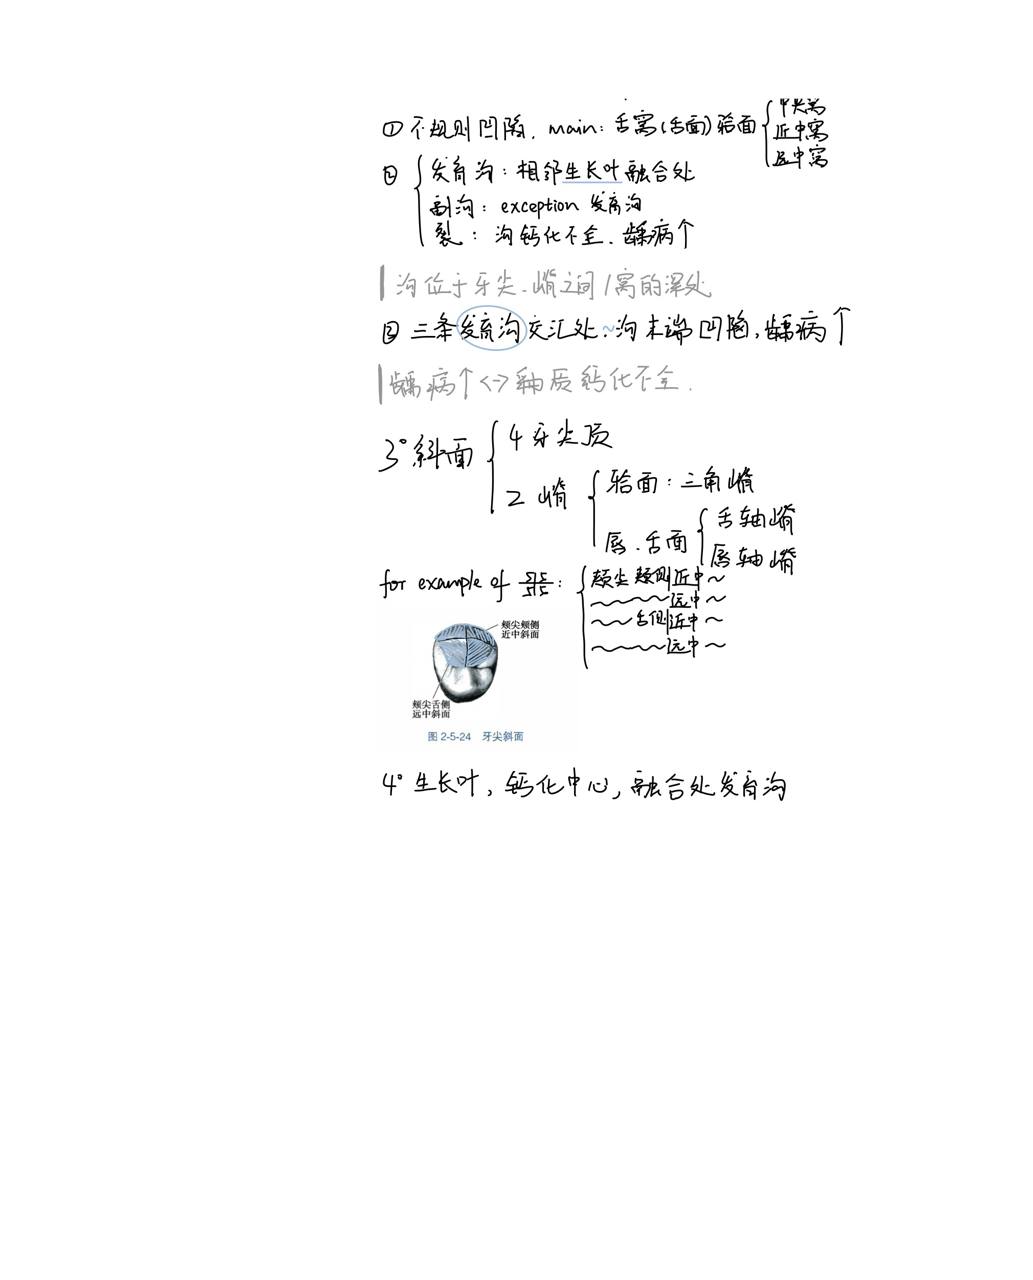 中央窝
① 不规则凹陷. main: 舌窝(舌面) 𬌗面
近中窝
远中窝
② 发育沟: 相邻生长叶融合处
副沟: exception 发育沟
裂: 沟钙化不全. 龋病↑
沟位于牙尖. 嵴之间/窝的深处
③ 三条发育沟交汇处.~沟末端凹陷, 龋病↑
龋病↑<->釉质钙化不全.
3° 斜面
4 牙尖顶
2 嵴
𬌗面: 三角嵴
唇.舌面
舌轴嵴
唇轴嵴
for example of
颊尖颊侧近中~
~~~~远中~
~~舌侧近中~
~~~~远中~
颊尖颊侧
近中斜面
颊尖舌侧
远中斜面
图 2-5-24 牙尖斜面
4° 生长叶, 钙化中心, 融合处发育沟